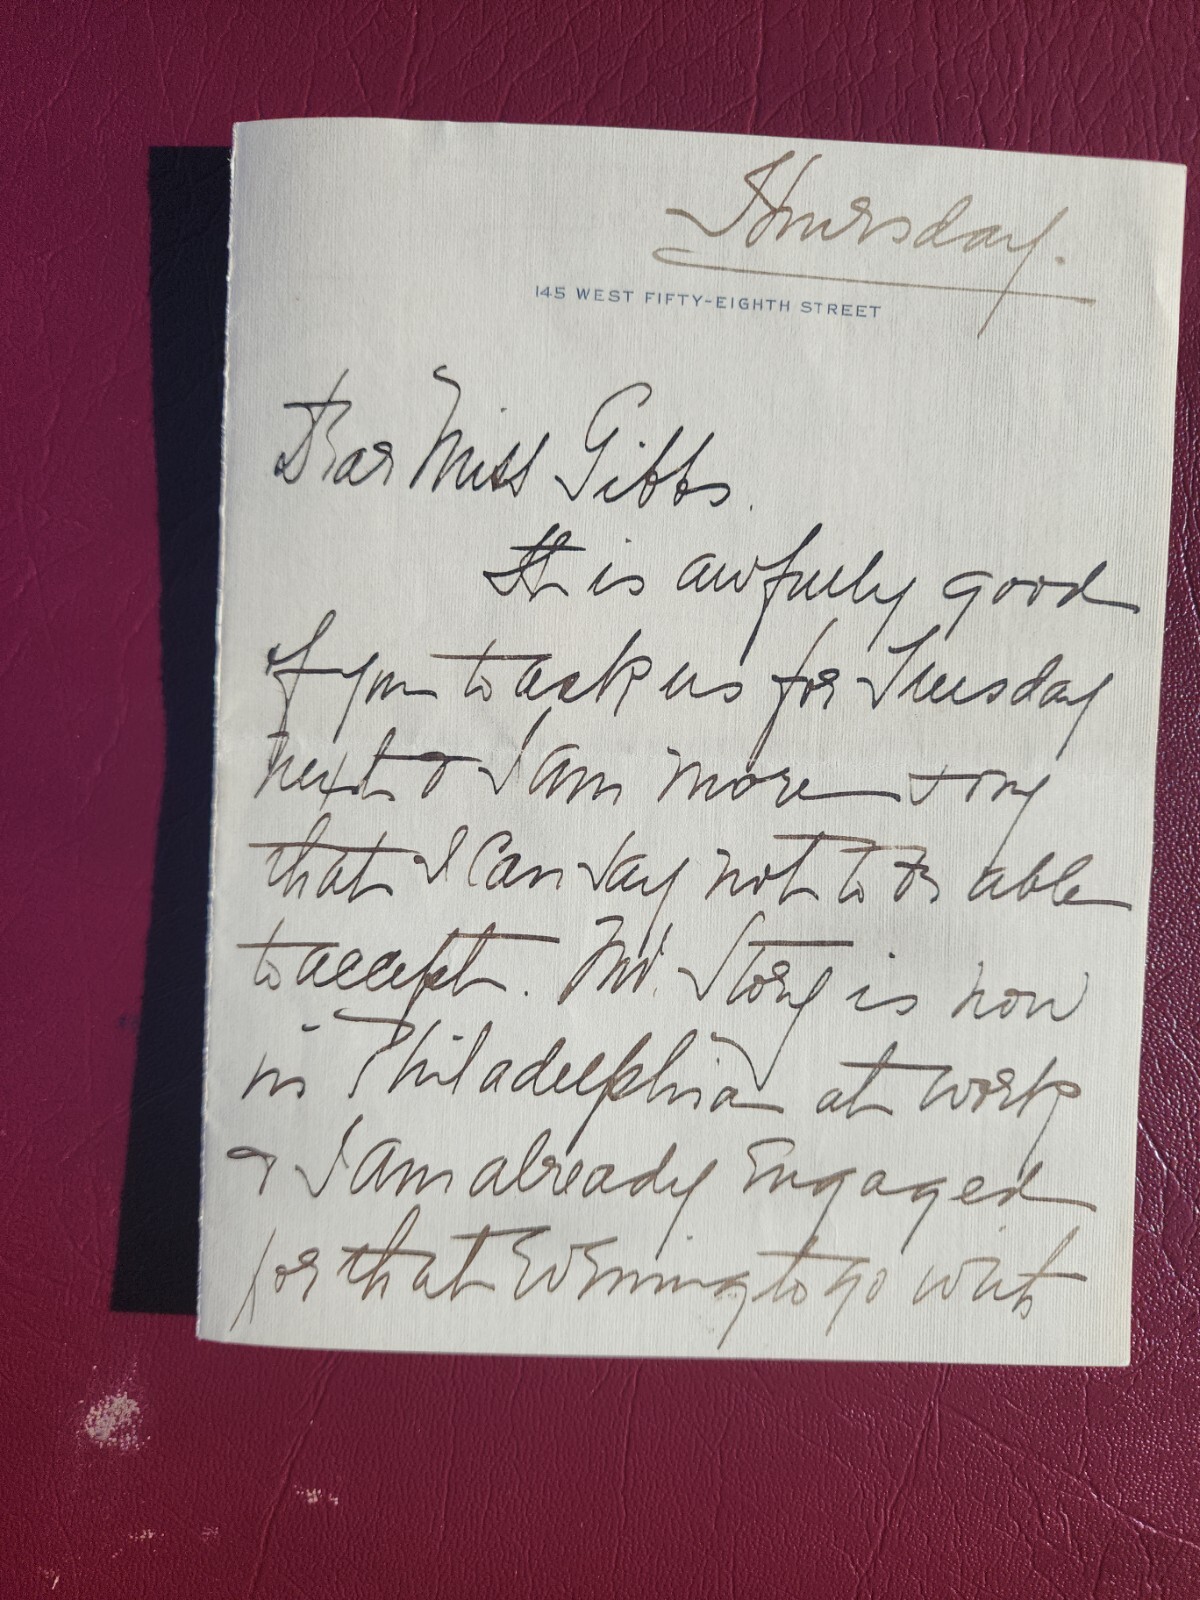 Thursday.
145 WEST FIFTY-EIGHTH STREET
Dear Miss Gibbs.
It is awfully good
of you to ask us for Tuesday
next & I am more sorry
that I can say not to be able
to accept. Mr. Story is now
in Philadelphia at work
& I am already engaged
for that evening to go with